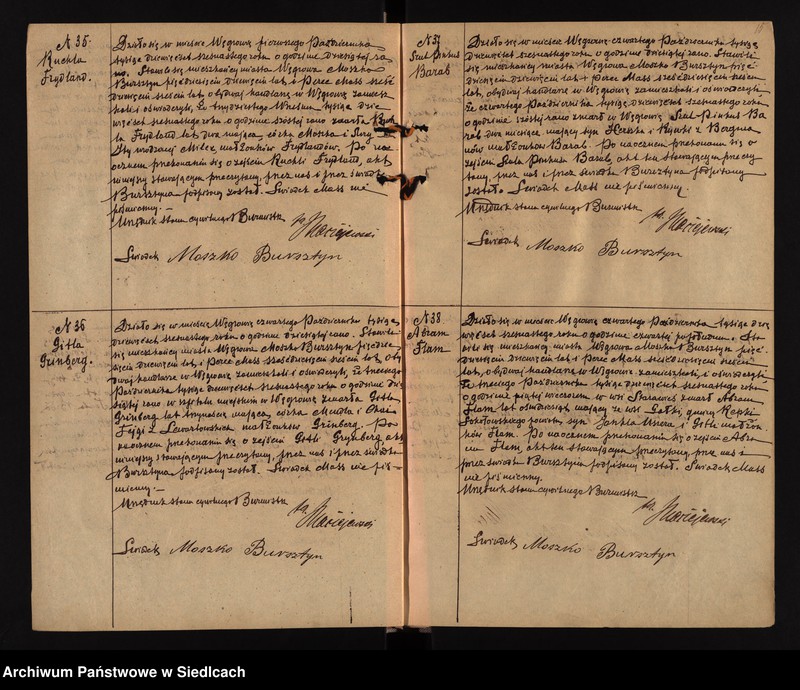 N 35
Ruchla
Frydland.
Działo się w mieście Węgrowie pierwszego Października
tysiąc dziewięćset szesnastego roku o godzinie dziesiątej ra-
no. Stawili się mieszkańcy miasta Węgrowa Moszko
Bursztyn pięćdziesiąt dziewięć lat i Perec Mass sześć-
dziesięciu sześciu lat, obydwaj handlarze w Węgrowie zamiesz-
kali i oświadczyli, że trzydziestego Września tysiąc dzie-
więćset szesnastego roku o godzinie szóstej rano zmarła Ruch-
la Frydland lat dwa mająca, córka Moszka i Sury
małżonków Frydlandów. Po na-
ocznem przekonaniu się o zejściu Ruchli Frydland, akt
niniejszy stawającym przeczytany, przez nas i przez świadka
Bursztyna podpisany został. Świadek Mass nie
piśmienny.—
Urzędnik stanu cywilnego Burmistrz
Maciejewski
Świadek Moszko Bursztyn
N 36
Gitla
Grinberg.
Działo się w mieście Węgrowie czwartego Października tysiąc
dziewięćset szesnastego roku o godzinie dziesiątej rano. Stawili
się mieszkańcy miasta Węgrowa Moszko Bursztyn pięćdzie-
siąt dziewięć lat, i Perec Mass sześćdziesięciu sześciu lat, oby-
dwaj handlarze w Węgrowie zamieszkali i oświadczyli, że trzeciego
Października tysiąc dziewięćset szesnastego roku o godzinie dzie-
siątej rano w szpitalu miejskim w Węgrowie zmarła Gitla
Grinberg lat trzynaście mająca, córka Mendla i Chai
Fejgi z Lewartowskich małżonków Grinberg. Po
naocznem przekonaniu się o zejściu Gitli Grynberg akt
niniejszy stawającym przeczytany, przez nas i przez świadka
Bursztyna podpisany został. Świadek Mass nie piś-
mienny.—
Urzędnik stanu cywilnego Burmistrz
Maciejewski
Świadek Moszko Bursztyn
N 37
Szul Pinkus
Barab
Działo się w mieście Węgrowie czwartego Października tysiąc
dziewięćset szesnastego roku o godzinie dziesiątej rano. Stawili
się mieszkańcy miasta Węgrowa Moszko Bursztyn pięć-
dziesiąt dziewięć lat i Perec Mass sześćdziesięciu sześciu
lat, obydwaj handlarze w Węgrowie zamieszkali i oświadczyli,
że czwartego Października tysiąc dziewięćset szesnastego roku
o godzinie szóstej rano zmarł w Węgrowie Szul Pinkus Ba-
rab dwa miesiące mający syn Herszka i z Bergma-
nów małżonków Barab. Po naocznem przekonaniu się o
zejściu Szula Pinkusa Barab, akt ten stawającym przeczy-
tany, przez nas i przez świadka Bursztyna podpisany
został. Świadek Mass nie piśmienny.
Urzędnik stanu cywilnego Burmistrz
Maciejewski
Świadek Moszko Bursztyn
N 38
Abram
Flam
Działo się w mieście Węgrowie czwartego Października tysiąc dzie-
więćset szesnastego roku o godzinie czwartej popołudniu. Sta-
wili się mieszkańcy miasta Węgrowa Moszko Bursztyn pięć-
dziesiąt dziewięć lat i Perec Mass sześćdziesięciu sześciu
lat, obydwaj handlarze w Węgrowie zamieszkali, i oświadczyli
że trzeciego Października tysiąc dziewięćset szesnastego roku
o godzinie piątej wieczorem w wsi zmarł Abram
Flam lat osiemdziesiąt mający ze wsi gminy
Sokołowskiego powiatu, syn Jankla i Gitli małżon-
ków Flam. Po naocznem przekonaniu się o zejściu Abra-
ma Flam, akt ten stawającym przeczytany, przez nas i
przez świadka Bursztyna podpisany został. Świadek Mass
nie piśmienny.
Urzędnik stanu cywilnego Burmistrz
Maciejewski
Świadek Moszko Bursztyn
Archiwum Państwowe w Siedlcach